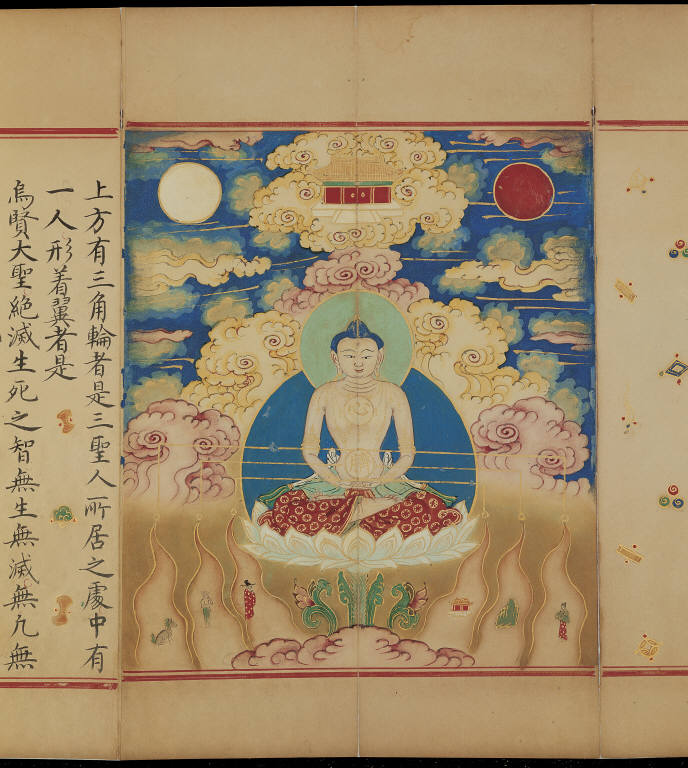 上方有三角輪者是三聖人所居之處中有
一人形着翼者是
烏賢大聖絶滅生死之智無生無滅無凡無